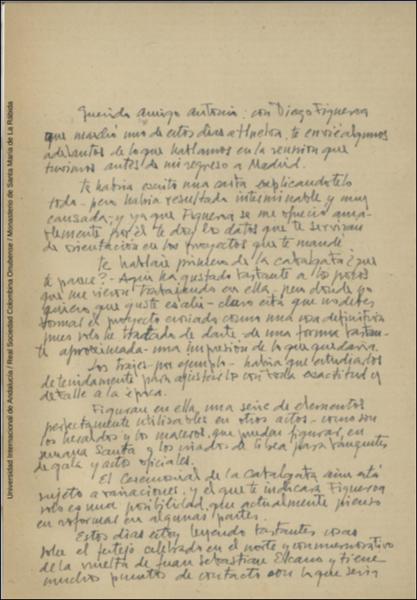 Universidad Internacional de Andalucía / Real Sociedad Colombina Onubense / Monasterio de Santa María de La Rábida
Querido amigo Antonio: con Diego Figueroa
que marchó uno de estos días a Huelva, te envié algunos
adelantos de lo que hablamos en la reunión que
tuvimos antes de mi regreso a Madrid.
Te habría escrito una carta explicándotelo
todo - pero habría resultado interminable y muy
cansada; y ya que Figueroa se me ofreció ama-
blemente por él te doy los datos que te servirán
de orientación en los proyectos que te mandé
Te hablaré primero de la cabalgata ¿que
te parece? - Aquí ha gustado bastante a los pocos
que me vieron trabajando en ella - pero donde yo
quiero que guste es allí - claro está que no debes
tomar el proyecto enviado como una cosa definitiva
pues solo he tratado de darte de una forma bastan-
te aproximada - una impresión de lo que quedaría.
Los trajes - por ejemplo - habría que estudiarlos
detenidamente para ajustarlo con toda exactitud y
detalle a la época.
Figuran en ella, una serie de elementos
perfectamente utilizables en otros actos - como son
los heraldos y los maceros, que puedan figurar, en
Semana Santa y los criados de librea para banquetes
de gala y actos oficiales.
El Ceremonial de la Cabalgata aún está
sujeto a variaciones, y el que te indicará Figueroa
solo es una posibilidad, que actualmente pienso
en reformas en algunas partes.
Estos días estoy leyendo bastantes cosas
sobre el festejo celebrado en el norte y conmemorativo
de la vuelta de Juan Sebastián Elcano y tiene
muchos puntos de contacto con lo que sería